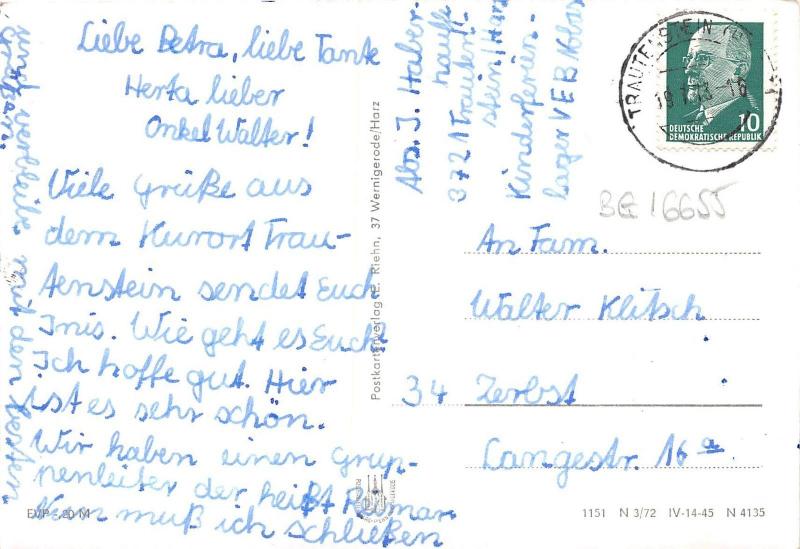 Liebe Petra, liebe Tante
Herta lieber
Onkel Walter!
Viele Grüße aus
dem Kurort Trau-
tenstein sendet Euch
Inis. Wie geht es Euch?
Ich hoffe gut. Hier
ist es sehr schön.
Wir haben einen Grup-
penleiter der heißt Reimar.
Nun muß ich schließen
und verbleibe mit den besten
Grüßen.
Abs. I. Haber-
hauffe
3721 Trauten-
stein/Harz
Kinderferien-
lager VEB
Postkartenverlag E. Riehn, 37 Wernigerode/Harz
TRAUTENSTEIN
10
DEUTSCHE
DEMOKRATISCHE REPUBLIK
BE 16655
An Fam.
Walter Klitsch
34 Zerbst
Langestr. 16a
EVP -,20 M
1151 N 3/72 IV-14-45 N 4135